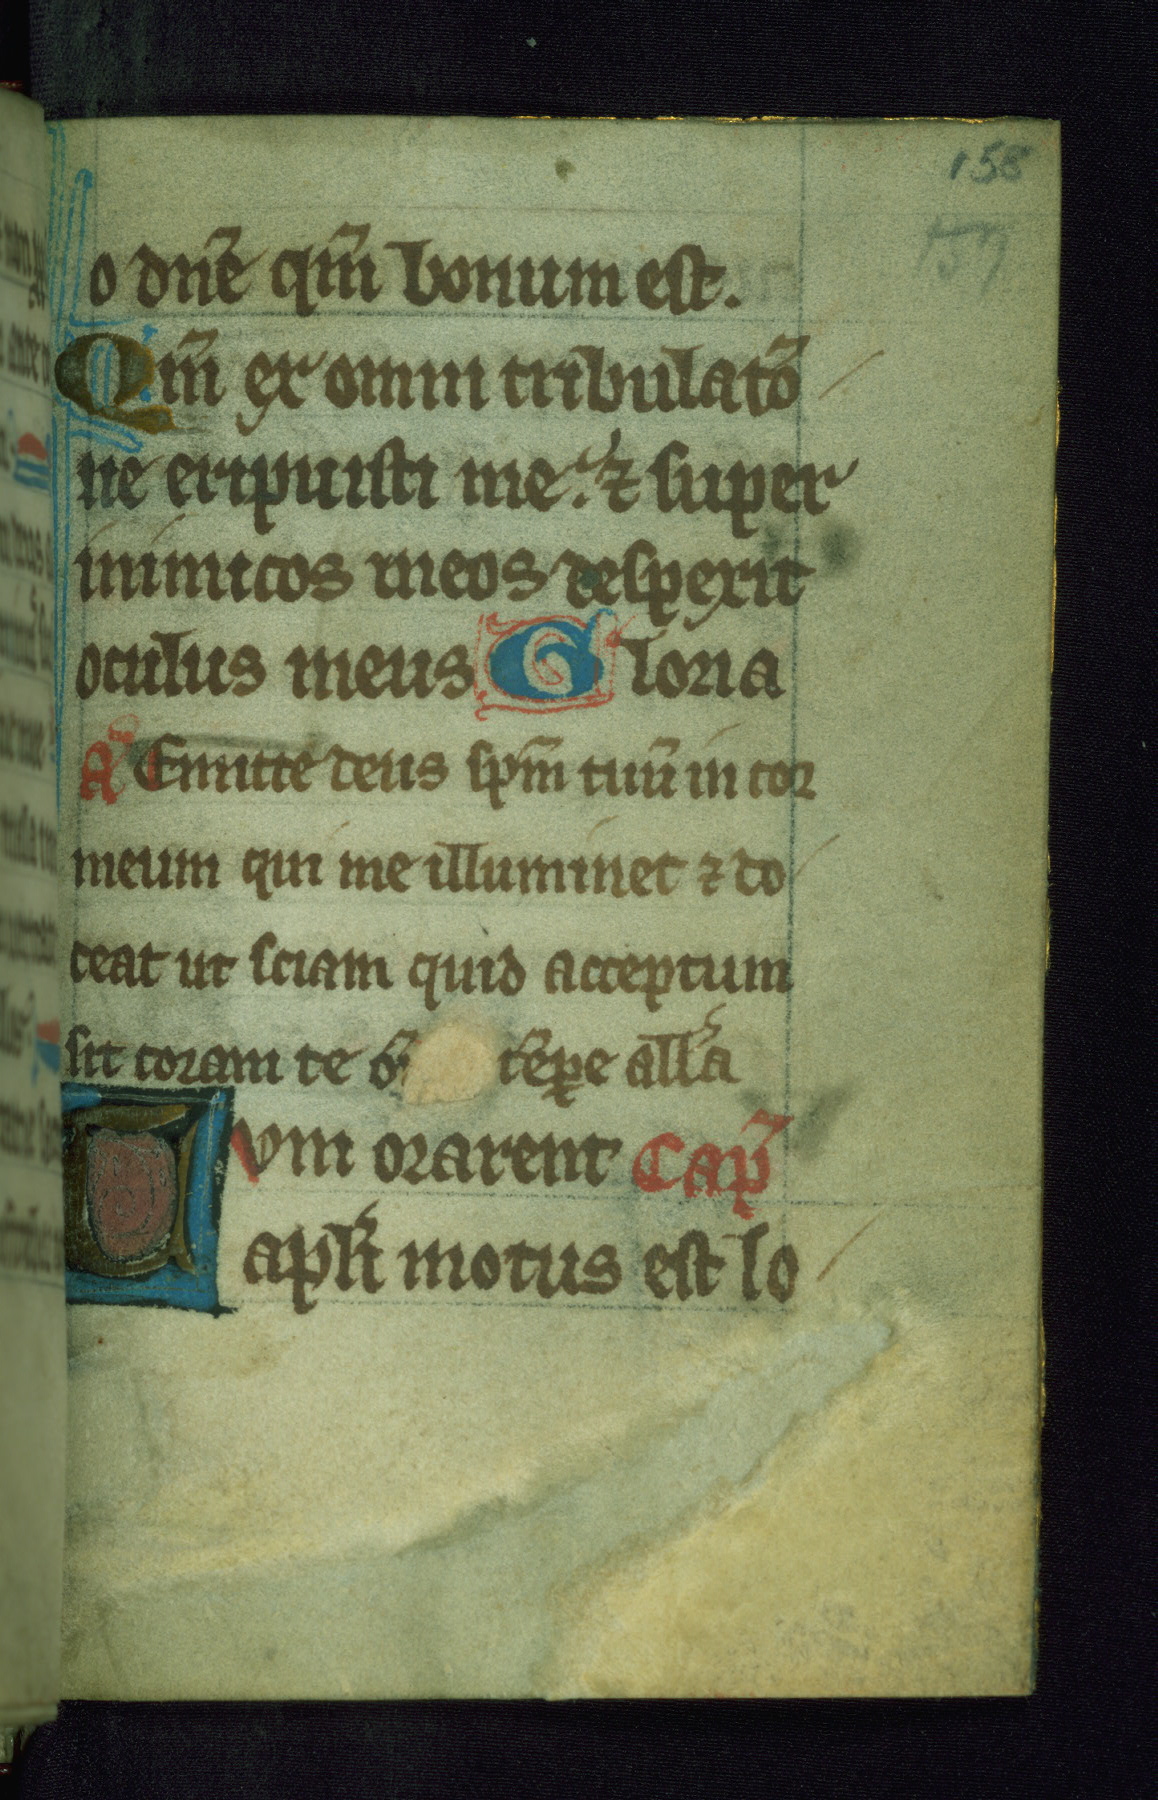 158
157
o dn̄e qm̄ bonum est.
Qm̄ ex omni tribulatō
ne eripuisti me. ⁊ super
inimicos meos desperit
oculus meus Gloria
A Emitte deus sp̄m tuū in cor
meum qui me illuminet ⁊ do
ceat ut sciam quid acceptum
sit coram te om̄ tēpe all'a
Cum orarent Cap̄
apl'i motus est lo